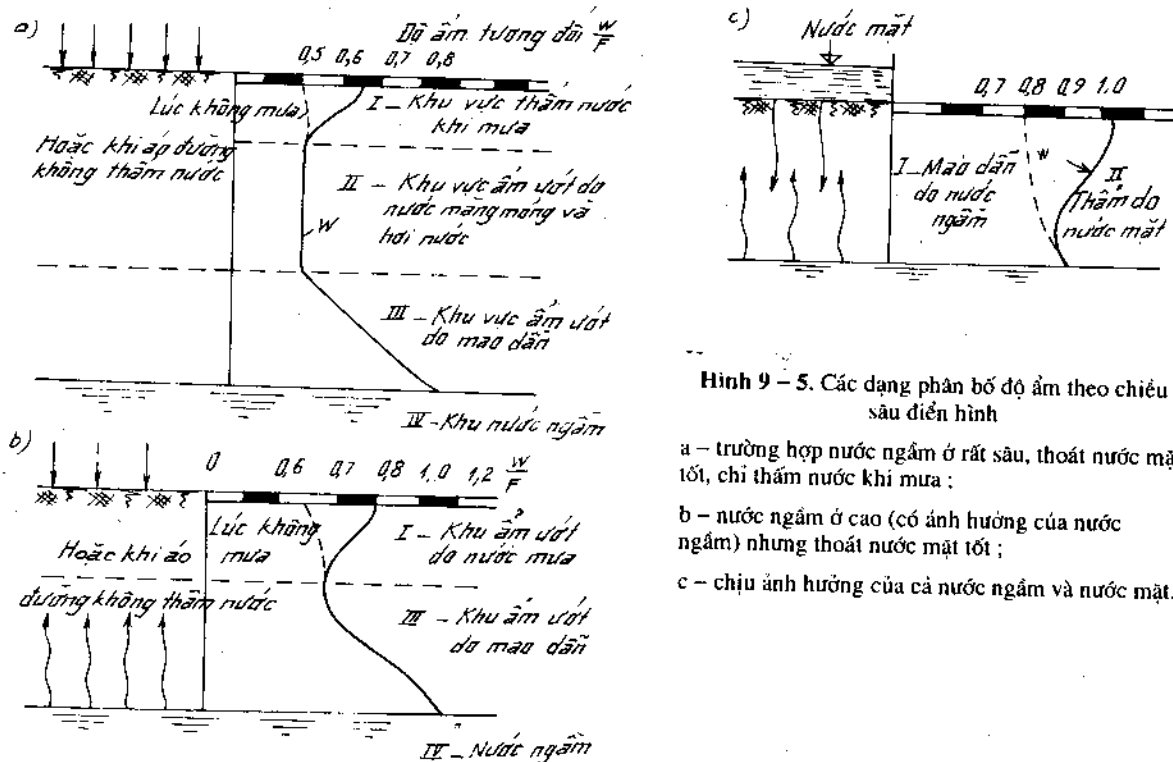 a)
Độ ẩm tương đối W/F
0,5 0,6 0,7 0,8
Lúc không mưa
I – Khu vực thấm nước
khi mưa
Hoặc khi áo đường
không thấm nước
II – Khu vực ẩm ướt do
nước màng mỏng và
hơi nước
W
III – Khu vực ẩm ướt
do mao dẫn
IV – Khu nước ngầm
b)
0 0,6 0,7 0,8 1,0 1,2 W/F
Lúc không
mưa
I – Khu ẩm ướt
do nước mưa
Hoặc khi áo
đường không thấm nước
III – Khu ẩm ướt
do mao dẫn
IV – Nước ngầm
c)
Nước mặt
0,7 0,8 0,9 1,0
I – Mao dẫn
do nước
ngầm
W
II
Thấm do
nước mặt
Hình 9 – 5. Các dạng phân bố độ ẩm theo chiều
sâu điển hình
a – trường hợp nước ngầm ở rất sâu, thoát nước mặ
tốt, chỉ thấm nước khi mưa ;
b – nước ngầm ở cao (có ảnh hưởng của nước
ngầm) nhưng thoát nước mặt tốt ;
c – chịu ảnh hưởng của cả nước ngầm và nước mặt.